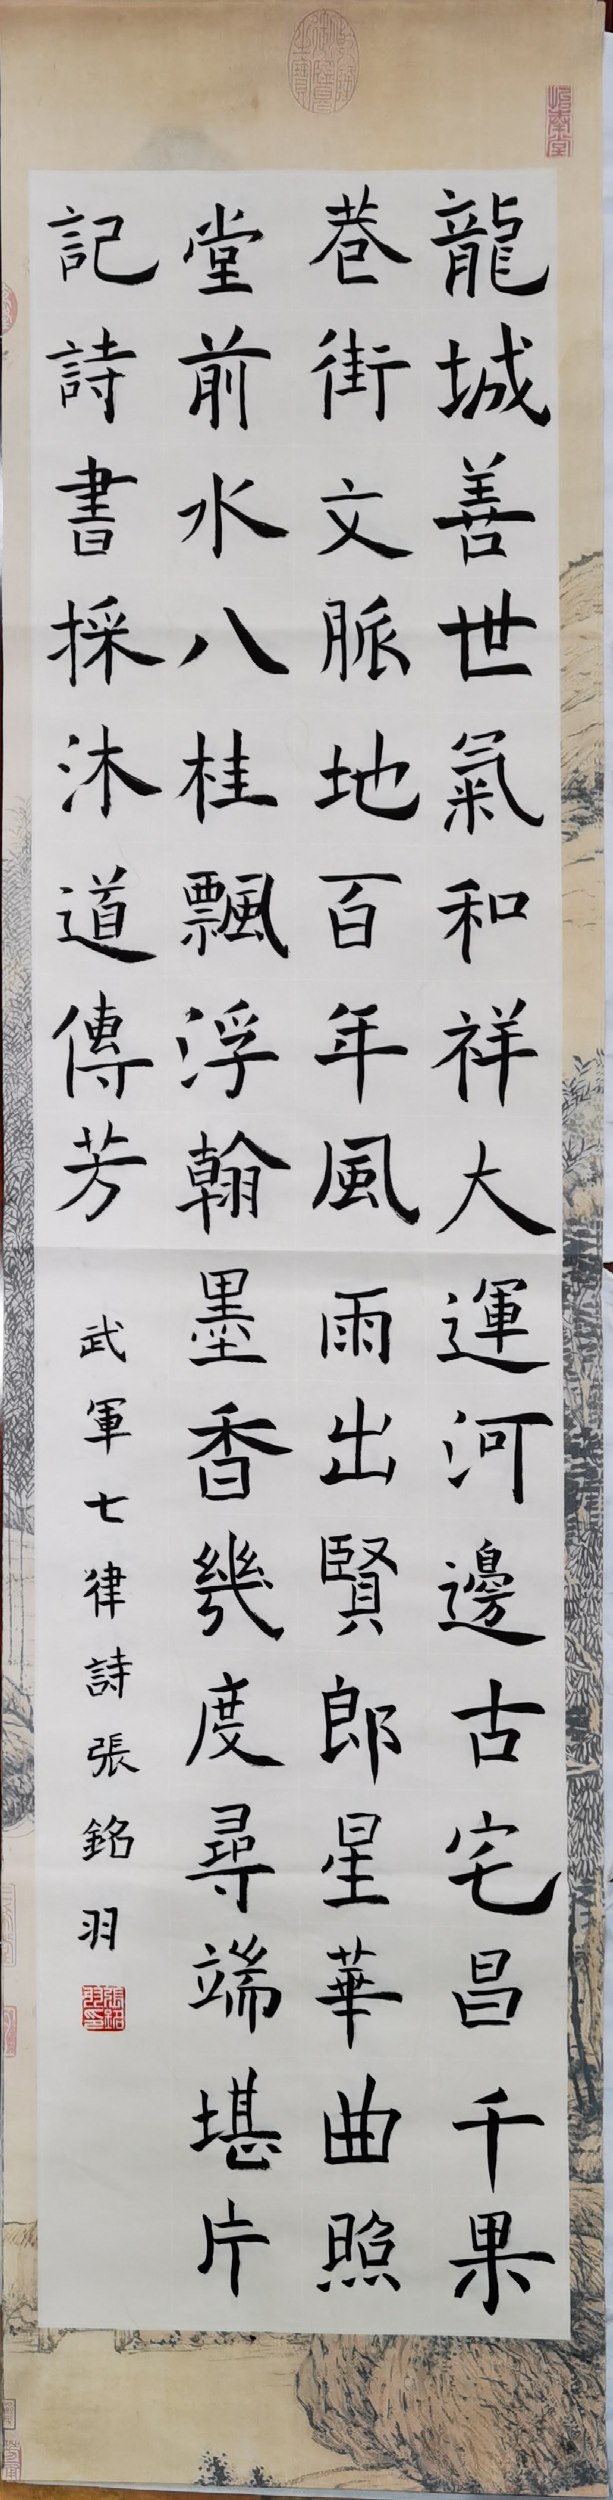 龍城善世氣和祥大運河邊古宅昌千果
巷街文脈地百年風雨出賢郎星華曲照
堂前水八桂飄浮翰墨香幾度尋端堪片
記詩書採沐道傳芳
武軍七律詩張銘羽